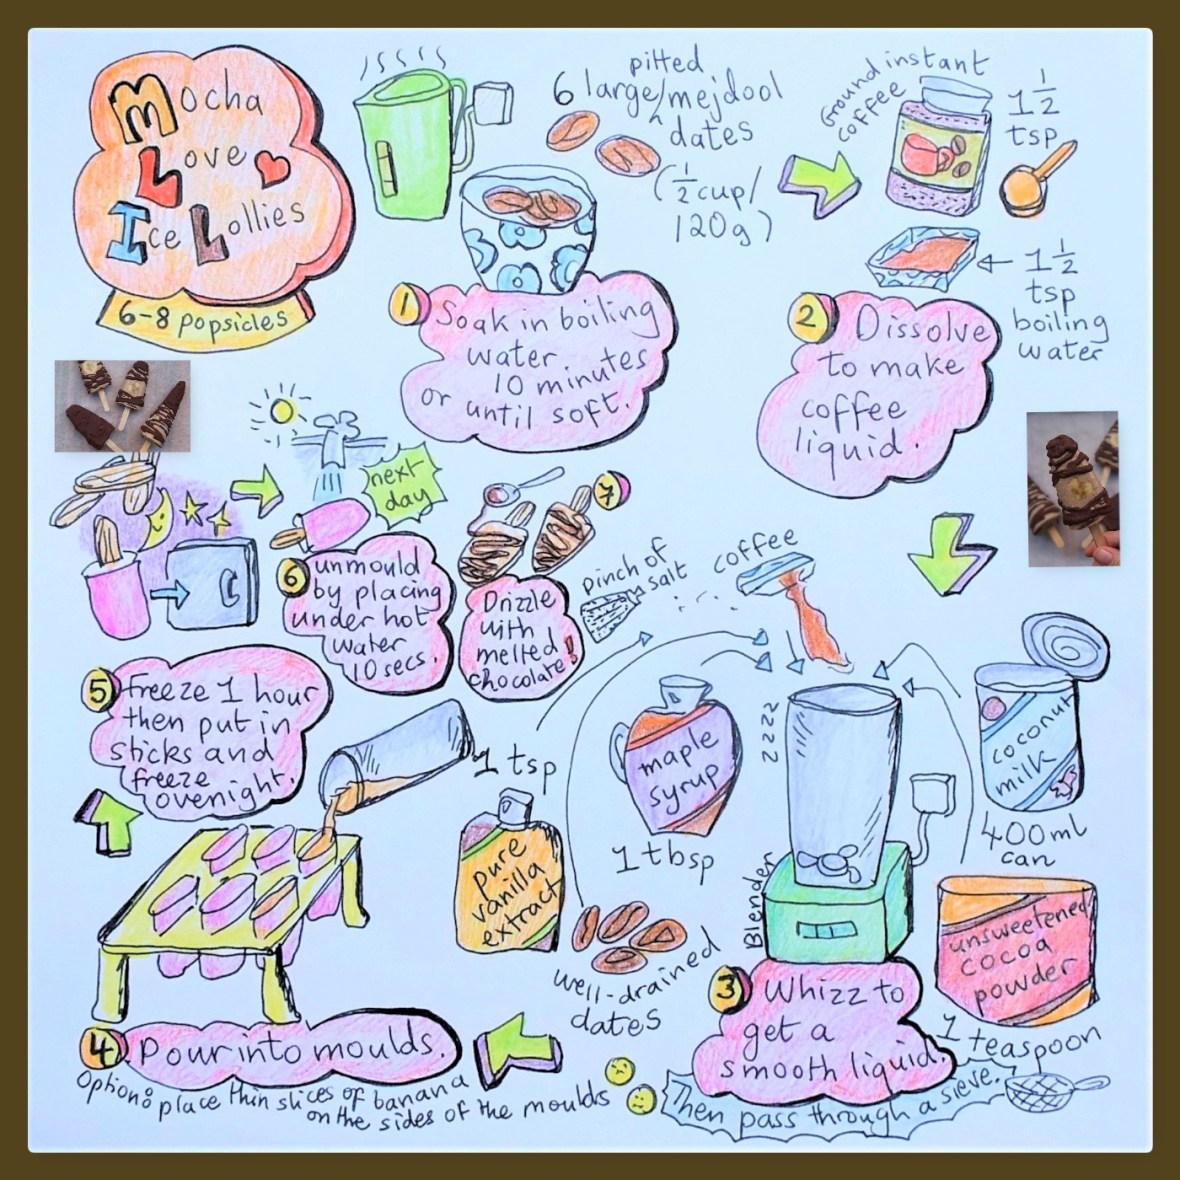 Mocha
Love
Ice Lollies
6-8 popsicles
pitted
6 large/mejdool
dates
(½ cup/
120g)
1
Soak in boiling
water
10 minutes
or until soft.
Ground instant
coffee
1½
tsp
1½
tsp
boiling
water
2
Dissolve
to make
coffee
liquid.
coffee
pinch of
salt
coconut
milk
400ml
can
maple
syrup
1 tbsp
zzzz
1 tsp
pure
vanilla
extract
well-drained
dates
Blender
unsweetened
cocoa
powder
1 teaspoon
3
Whizz to
get a
smooth liquid.
Then pass through a sieve.
4
Pour into moulds.
Option: place thin slices of banana
on the sides of the moulds
5
freeze 1 hour
then put in
sticks and
freeze
overnight.
next
day
6
unmould
by placing
under hot
water
10 secs.
7
Drizzle
with
melted
chocolate!